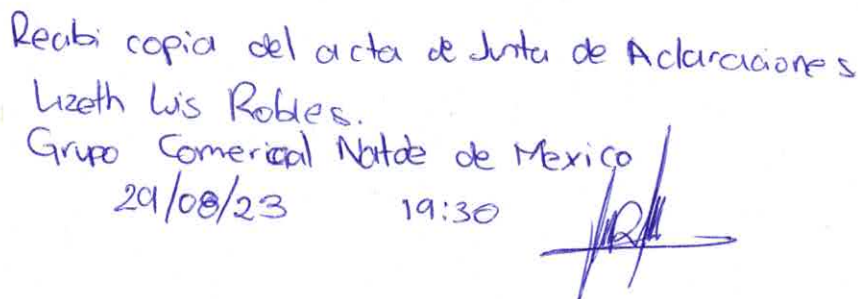 Recibi copia del acta de Junta de Aclaraciones
Lizeth Luis Robles.
Grupo Comerical Natde de Mexico
29/08/23 19:30